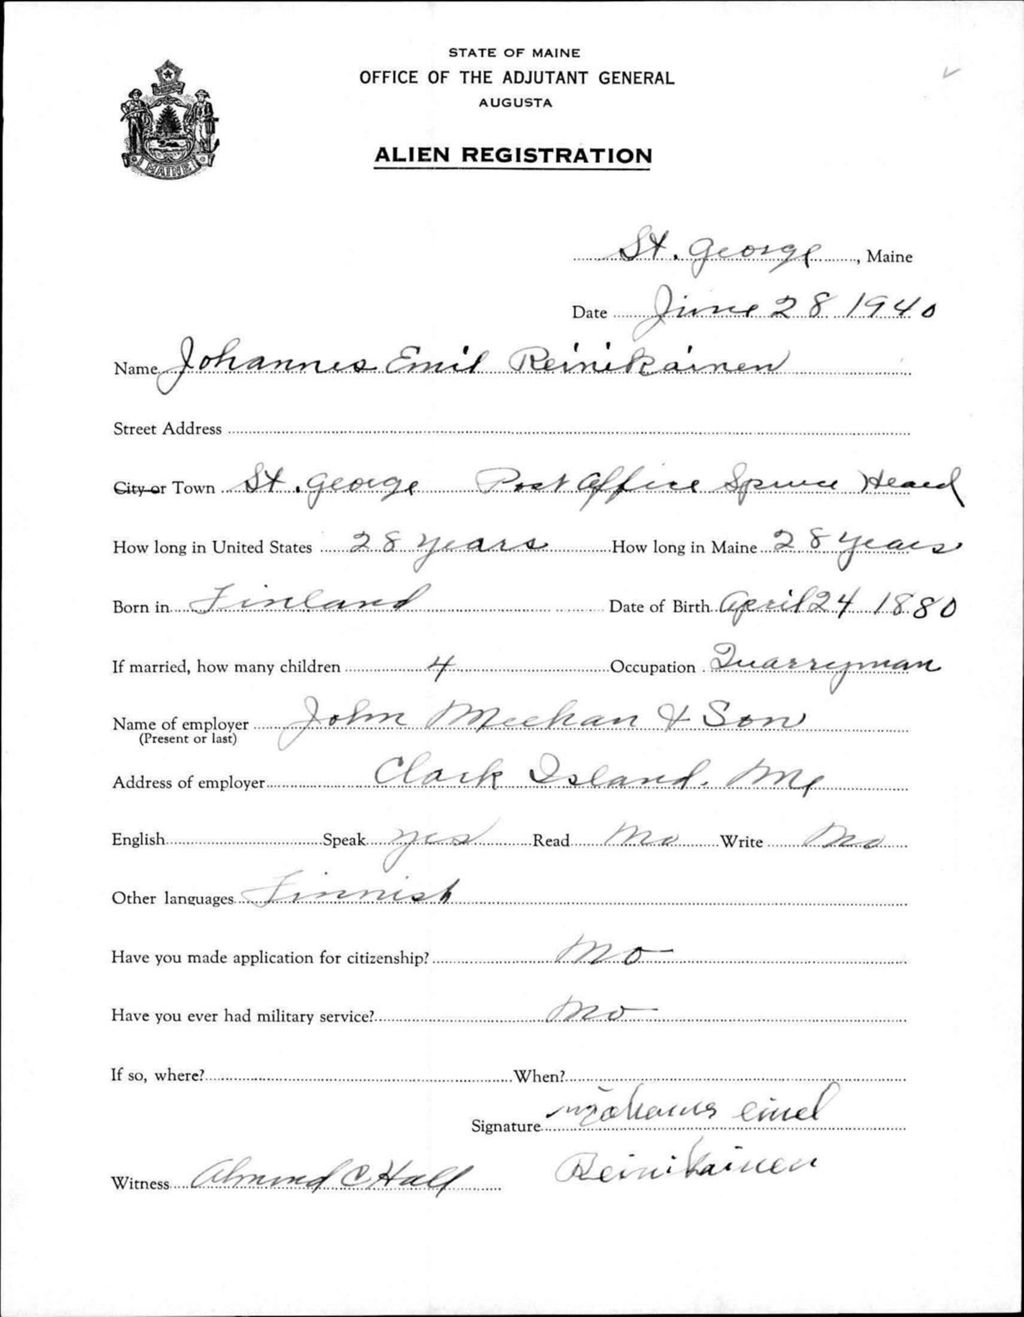 STATE OF MAINE
OFFICE OF THE ADJUTANT GENERAL
AUGUSTA
ALIEN REGISTRATION
MAINE
St. George, Maine
Date June 28 1940
Name Johannes Emil Reinikainen
Street Address
City or Town St. George Post Office Spruce Head
How long in United States 28 years How long in Maine 28 years
Born in Finland Date of Birth April 24 1880
If married, how many children 4 Occupation Quarryman
Name of employer John Meehan & Son
(Present or last)
Address of employer Clark Island, Me
English Speak yes Read No Write No
Other languages Finnish
Have you made application for citizenship? No
Have you ever had military service? No
If so, where? When?
Signature Johanns Emel
Reinikainen
Witness Almond C Hall